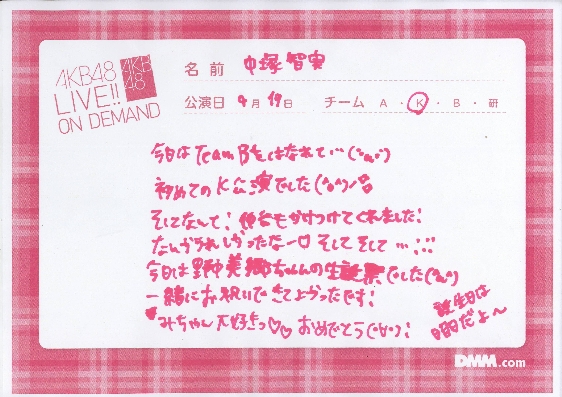 AKB48
LIVE!!
ON DEMAND
AKB
48
名前 中塚智実
公演日 9月19日 チーム A・K・B・研
今日はTeam Bをはなれて…
初めてのK公演でした(^o^)/
そしてなんと! もかけつけてくれました!
なんかうれしかったなー♡ そして そして …!!!
今日は野中美郷ちゃんの生誕祭でした
一緒にお祝いできてよかったです!
みちゃん大好きっ♡♡ おめでとう(^o^)!
誕生日は
明日だよ〜
DMM.com